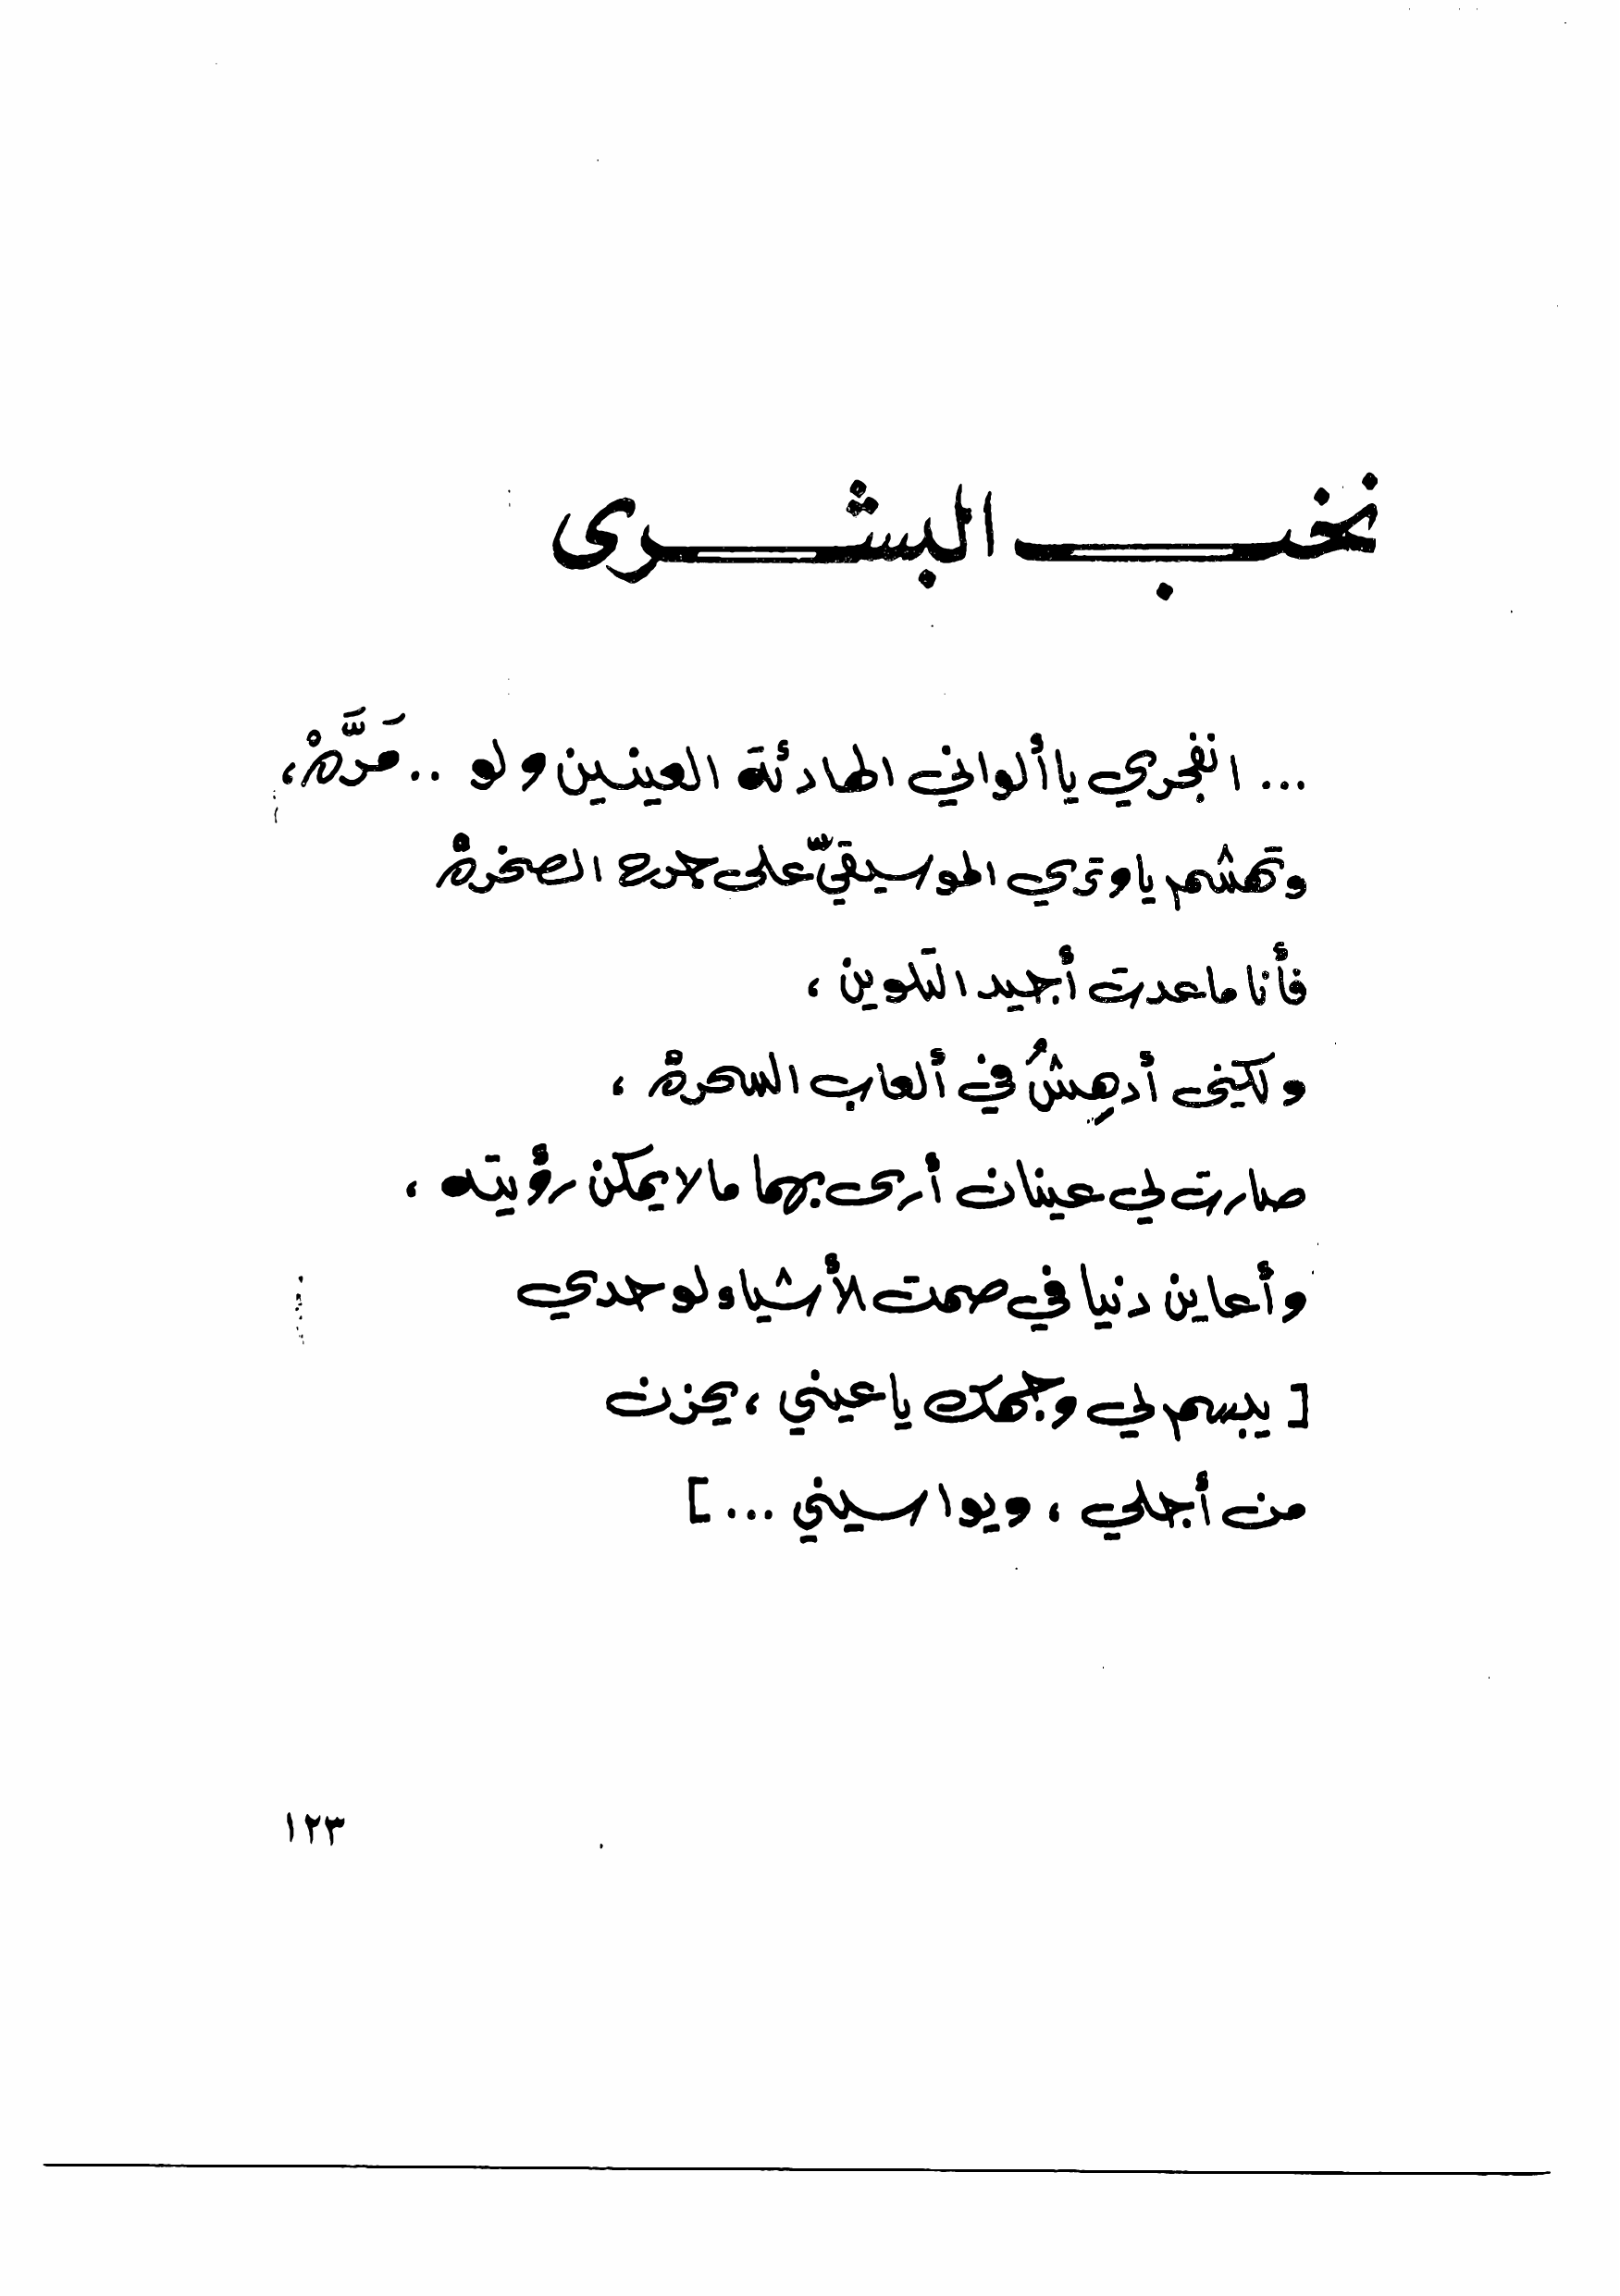 نخب البشرى
... انفجري يا ألواني الهادئة العينين ولو .. مَرَّهْ،
وتهشم يا وتري الموسيقيّ على جرح الصخرهْ
فأنا ما عدت أجيد التلوين ،
ولكنى أدهِشُ في ألعاب السحرهْ ،
صارت لي عينان أرى بهما ما لا يمكن رؤيته ،
وأعاين دنيا في صمت الأشياء لوحدي
[ يبسم لي وجهك يا عيني ، يحزن
من أجلي ، ويواسيني ... ]
١٢٣